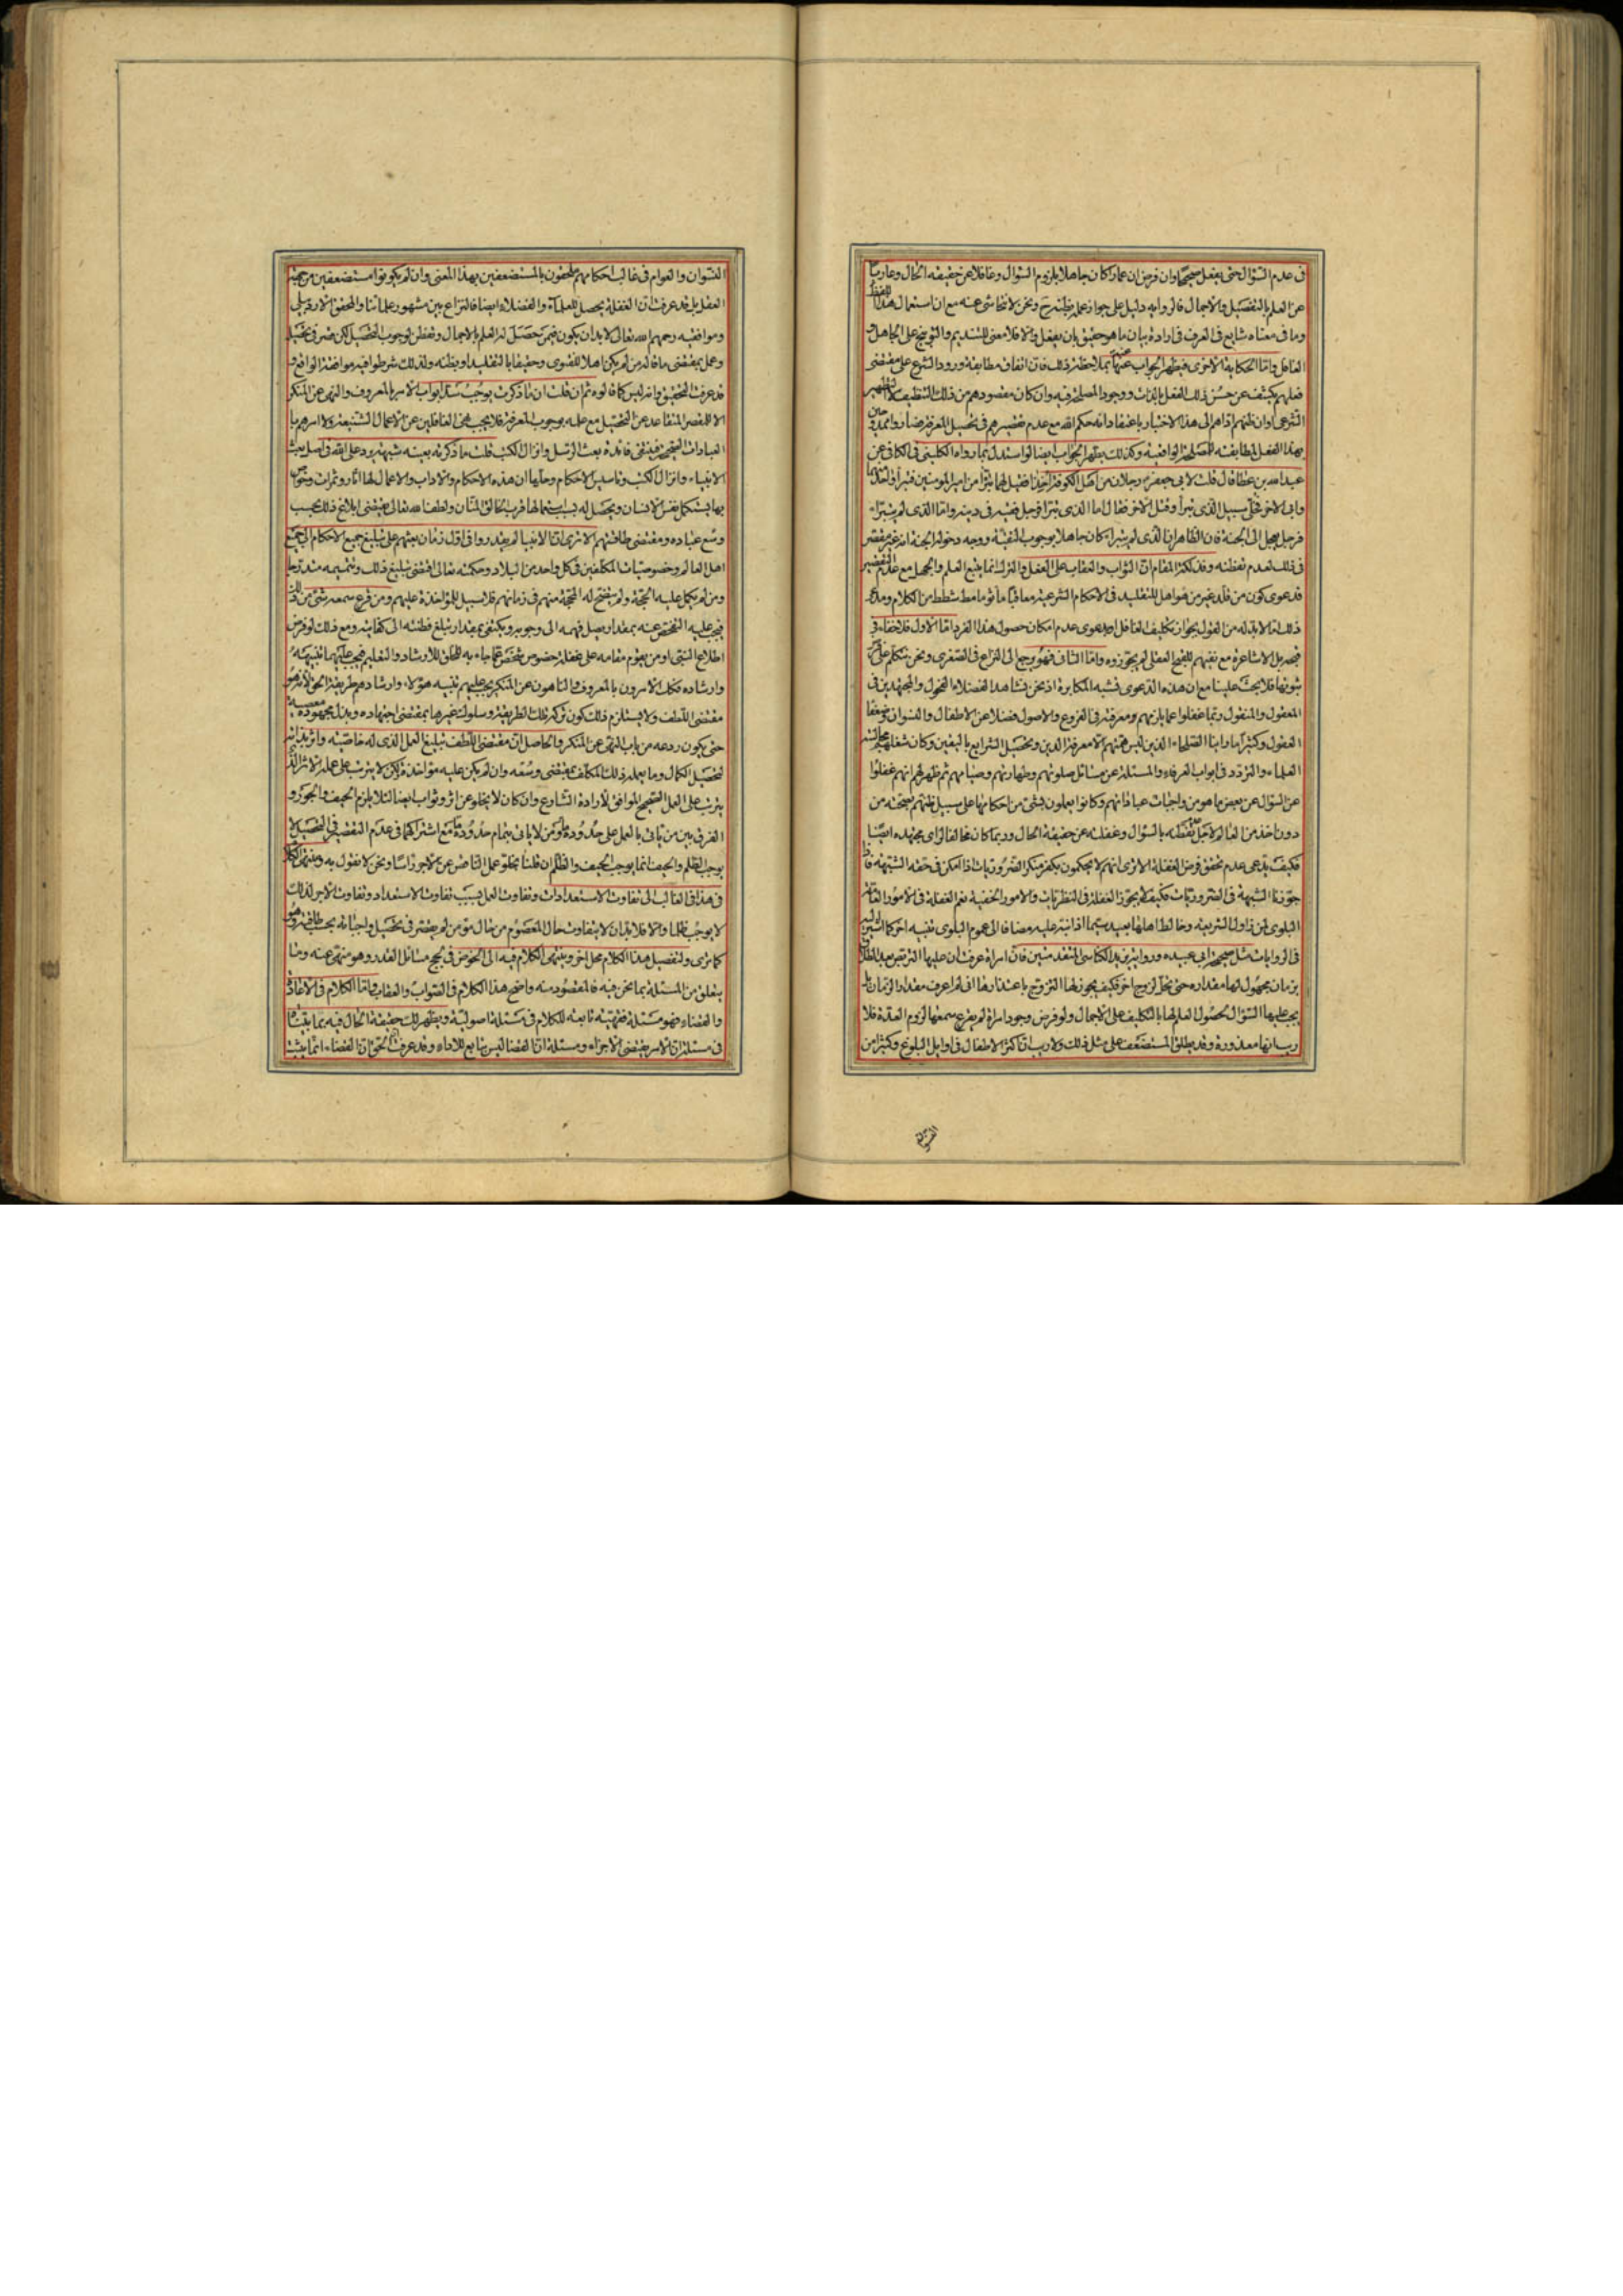 في عدم السؤال حتى يفعل صحيحا وان فرض ان عمارا كان جاهلا بلزوم السؤال وغافلا عن حقيقة الحال وعاريا
عن العلم بالتفصيل والاجمال فالرواية دليل على جواز عمله بظنه ونحن لا نتحاشى عنه مع ان استعمال هذا اللفظ
وما في معناه شايع في العرف في ارادة بيان ما هو حقيق بان يفعل والا فلا معنى للتنديم والتوبيخ على الجاهل و
الغافل واما الحكاية الاخرى فيظهر الجواب عنها بملاحظة ذلك فان اتفاق مطابقة ورود الشرع على مقتضى
فعلهم يكشف عن حسن ذلك الفعل بالذات ووجود المصلحة فيه وان كان مقصودهم من ذلك التنظيف لا التطهير
الشرعي او ان ظنهم اداهم الى هذا الاختيار باعتقاد انه حكم الله مع عدم تقصيرهم في تحصيل المعرفة فصاروا ممدوحين
بهذا الفعل لمطابقته للمصلحة الواقعية وكذلك يظهر الجواب ايضا لو استدل بما رواه الكليني في الكافي عن
عبد الله بن عطا قال قلت لابي جعفر رجلان من اهل الكوفة اخذا فقيل لهما تبرآ من امير المؤمنين فتبرأ واحد منهما
وابى الاخر فخلي سبيل الذي تبرأ وقتل الاخر فقال اما الذي تبرأ فرجل فقيه في دينه واما الذي لم يتبرأ
فرجل تعجل الى الجنة فان الظاهر ان الذي لم يتبرأ كان جاهلا بوجوب التقية ووجه دخوله الجنة انه غير مقصر
في ذلك لعدم تفطنه وفذلكة المقام ان الثواب والعقاب على الفعل والترك انما يتبع العلم والجهل مع عدم التقصير
فدعوى كون من قلد غير من هو اهل للتقليد في الاحكام الشرعية معاقبا مأثوما مط شطط من الكلام ومدعي
ذلك اما لا بد له من القول بجواز تكليف الغافل او دعوى عدم امكان حصول هذا الفرد اما الاول فلا خفاء في
قبحه بل الاشاعرة مع نفيهم للقبح العقلي لم يجوزوه واما الثاني فهو يرجع الى النزاع في الصغرى ونحن نتكلم على فرض
ثبوتها فلا بحث علينا مع ان هذه الدعوى شبه المكابرة اذ نحن نشاهد الفضلاء الفحول والمجتهدين في
المعقول والمنقول ربما غفلوا عما يلزمهم ومعرفته في الفروع والاصول فضلا عن الاطفال والنسوان وضعفاء
العقول وكثيرا ما راينا الصلحاء الذين ليس همتهم الا معرفة الدين وتحصيل الشرايع باليقين وكان شغلهم مجالسة
العلماء والتردد في ابواب العرفاء والمسئلة عن مسائل صلوتهم وطهارتهم وصيامهم ثم ظهر لهم انهم غفلوا
عن السؤال عن بعض ما هو من واجبات عباداتهم وكانوا يعملون بشئ من احكامها على سبيل ظنهم بصحته من
دون اخذ من العالم لاجل عدم تفطنه بالسؤال وغفلته عن حقيقة الحال وربما كان مخالفا لراي مجتهده ايضا
فكيف يدعى عدم تحقق فرض الغفلة الا ترى انهم لا يحكمون بكفر منكر الضروريات اذا امكن في حقه الشبهة فاذا
جوزنا الشبهة في الضروريات فكيف لا يجوز الغفلة في النظريات والامور الخفية نعم الغفلة في الامور العامة
البلوى لمن زاول الشريعة وخالط اهلها بعيد سيما اذا نبه عليه مضافا الى عموم البلوى تنبيه اخر كما اشير اليه
في الروايات مثل صحيحة ابي عبيدة ورواية يزيد الكناسي المتقدمتين فان امراة عرفت ان عليها التربص بعد الطلاق
بزمان مجهول لها مقداره حتى تحل لزوج اخر فكيف يجوز لها التزويج باعتذارها اني لم اعرف مقدار الزمان بل
يجب عليها السؤال لحصول العلم لها بالتكليف على الاجمال ولو فرض وجود امراة لم يقرع سمعها لزوم العدة فلا
ريب انها معذورة وقد يطلق المستضعف على مثل ذلك ولا ريب ان اكثر الاطفال في اوايل البلوغ وكثيرا من
النسوان
النسوان والعوام في غالب احكامهم ملحقون بالمستضعفين بهذا المعنى وان لم يكونوا مستضعفين من جهة
العقل بل قد عرفت ان الغفلة يحصل للعلماء والفضلاء ايضا فالنزاع بين مشهور علمائنا والمحقق الاردبيلي
وموافقيه رحمهم الله تعالى لا بد ان يكون فيمن حصل له العلم بالاجمال وتفطن لوجوب التحصيل لكن قصر في تحصيله
وعمل بمقتضى ما قاله من لم يكن اهلا للفتوى وحقيقا بالتقليد او بظنه ولذلك شرطوا فيه موافقة الواقع و
قد عرفت التحقيق وانه ليس كما قالوه ثم ان قلت ان ما ذكرت يوجب سد ابواب الامر بالمعروف والنهي عن المنكر
الا للمقصر المتقاعد عن التحصيل مع علمه بوجوب المعرفة فلا يجب نهي الغافلين عن الاعمال الشنيعة ولا امرهم با
لعبادات الصحيحة فينتفي فائدة بعث الرسل وانزال الكتب قلت ما ذكرته بعينه شبهة يرد على الله في اصل بعث
الانبياء وانزال الكتب وتاسيس الاحكام وحلها ان هذه الاحكام والاداب والاعمال لها اثار وثمرات وخواص
بها يستكمل نفس الانسان ويحصل له بسبب استعمالها قرب الخالق المنان ولطف الله تعالى يقتضي ابلاغ ذلك بحسب
وسع عباده ومقتضى طاقتهم الا ترى ان الانبيا لم يقدروا في اول زمان بعثهم على تبليغ جميع الاحكام الى جميع
اهل العالم وخصوصيات المكلفين في كل واحد من البلاد وحكمته تعالى اقتضى تبليغ ذلك وتتميمه متدرجا
ومن لم يكمل عليه الحجة ولم يتضح له المحجة منهم في زمانهم فلا سبيل للمؤاخذة عليهم ومن قرع سمعه شئ من ذلك
فيجب عليه التفحص عنه بمقدار يصل فهمه الى وجوبه ويكتفي بمقدار تبلغ فطنته الى كفايته ومع ذلك لو فرض
اطلاع النبي او من يقوم مقامه على غفلة خصوص شخص عما جاء به للخلق للارشاد والتعليم فيجب عليهما تنبيهه
وارشاده فكك الامرون بالمعروف والناهون عن المنكر يجب عليهم تنبيه هؤلاء وارشادهم طريقة الحق لانه هو
مقتضى اللطف ولا يستلزم ذلك كون تركه تلك الطريقة وسلوك غيرها بمقتضى اجتهاده وبذل مجهوده معصية
حتى يكون ردعه من باب النهي عن المنكر والحاصل ان مقتضى اللطف تبليغ العمل الذي له خاصية واثر بذاته
لتحصيل الكمال وما يعمله ذلك المكلف بمقتضى وسعه وان لم يكن عليه مؤاخذة لكن لا يترتب على عمله الاثر الذي
يترتب على العمل الصحيح الموافق لارادة الشارع وان كان لا يخلو عن اثر وثواب ايضا لئلا يلزم الحيف والجور و
الفرق بين من ياتي بالعمل على حدوده ومن لا ياتي بتمام حدوده مع اشتراكهما في عدم التقصير في التحصيل لا
يوجب الظلم والحيف انما يوجب الحيف والظلم ان قلنا بخلو عمل الناقص عن الاجر راسا ونحن لا نقول به ومنتهى الكلام
في هذا في الغالب الى تفاوت الاستعدادات وتفاوت العمل بسبب تفاوت الاستعداد وتفاوت الاجر لذلك
لا يوجب ظلما والا فلا بد ان لا يتفاوت حال المعصوم من حال مؤمن لم يقصر في تحصيل واجباته بحسب طاقته وهو
كما ترى ولتفصيل هذا الكلام محل اخر وينتهي الكلام فيه الى الخوض في لجج مسائل القدر وهو منهي عنه وما
يتعلق من المسئلة بما نحن فيه فالمقصود منه واضح هذا الكلام في الثواب والعقاب واما الكلام في الاعادة
والقضاء فهو مسئلة فقهية تابعة للكلام في مسئلة اصولية ويظهر لك حقيقة الحال فيه بما بيناه
في مسئلة ان الامر يقتضي الاجزاء ومسئلة ان القضا ليس بتابع للاداء وقد عرفت الحق ان القضاء انما يثبت